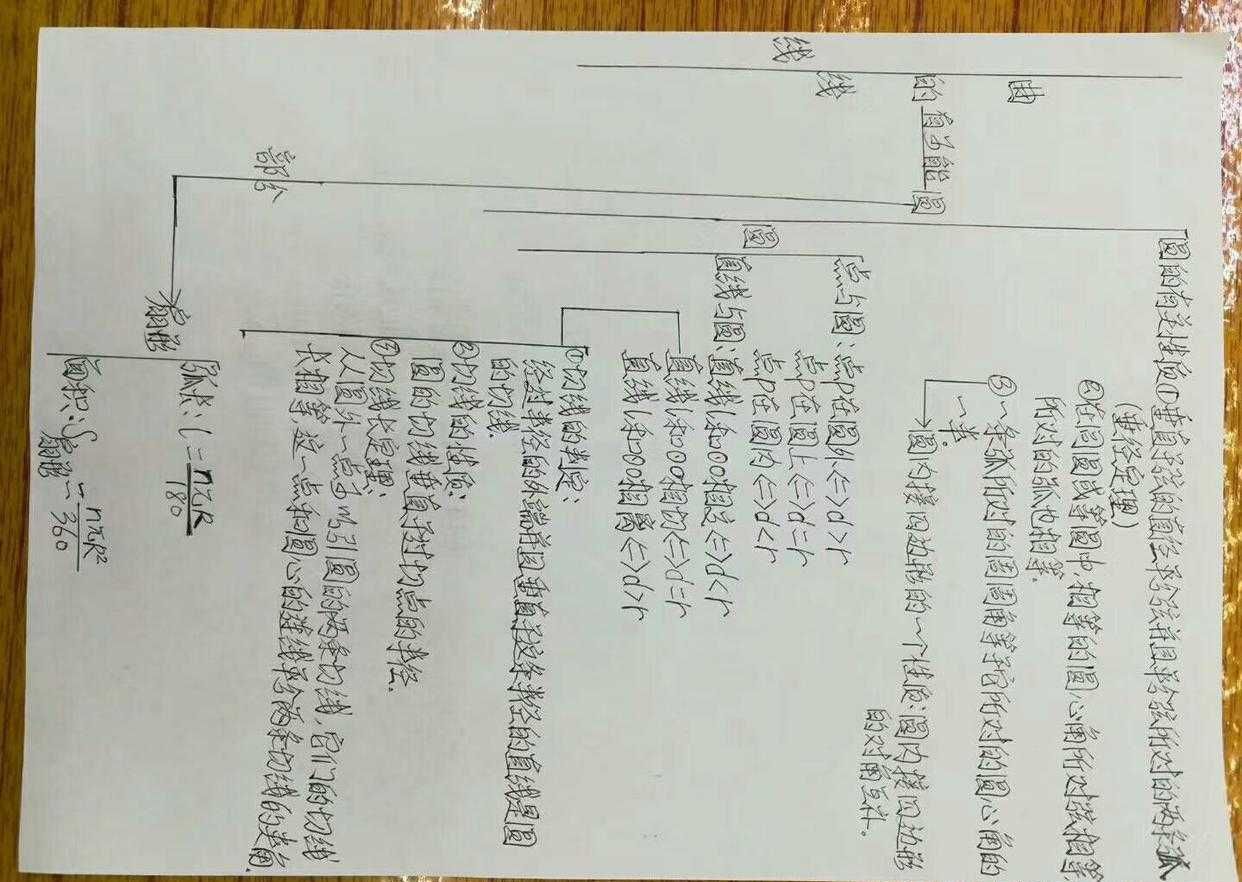 曲
线
线
的
直
圆
部分
圆的有关性质①垂直于弦的直径平分弦并且平分弦所对的两条弧
(垂径定理)
②在同圆或等圆中,相等的圆心角所对弦相等
所对的弧也相等.
③一条弧所对的圆周角等于它所对的圆心角的
一半.
圆内接四边形的一个性质:圆内接四边形
的对角互补.
圆
点与圆:点P在圆外<=>d>r
点P在圆上<=>d=r
点P在圆内<=>d<r
直线与圆:直线l和⊙O相交<=>d<r
直线l和⊙O相切<=>d=r
直线l和⊙O相离<=>d>r
①切线的判定:
经过半径的外端并且垂直于这条半径的直线是圆
的切线.
②切线的性质:
圆的切线垂直于过切点的半径.
③切线长定理:
从圆外一点可以引圆的两条切线,它们的切线
长相等.这一点和圆心的连线平分两条切线的夹角.
扇形
弧长:l=nπR/180
面积:S扇形=nπR²/360